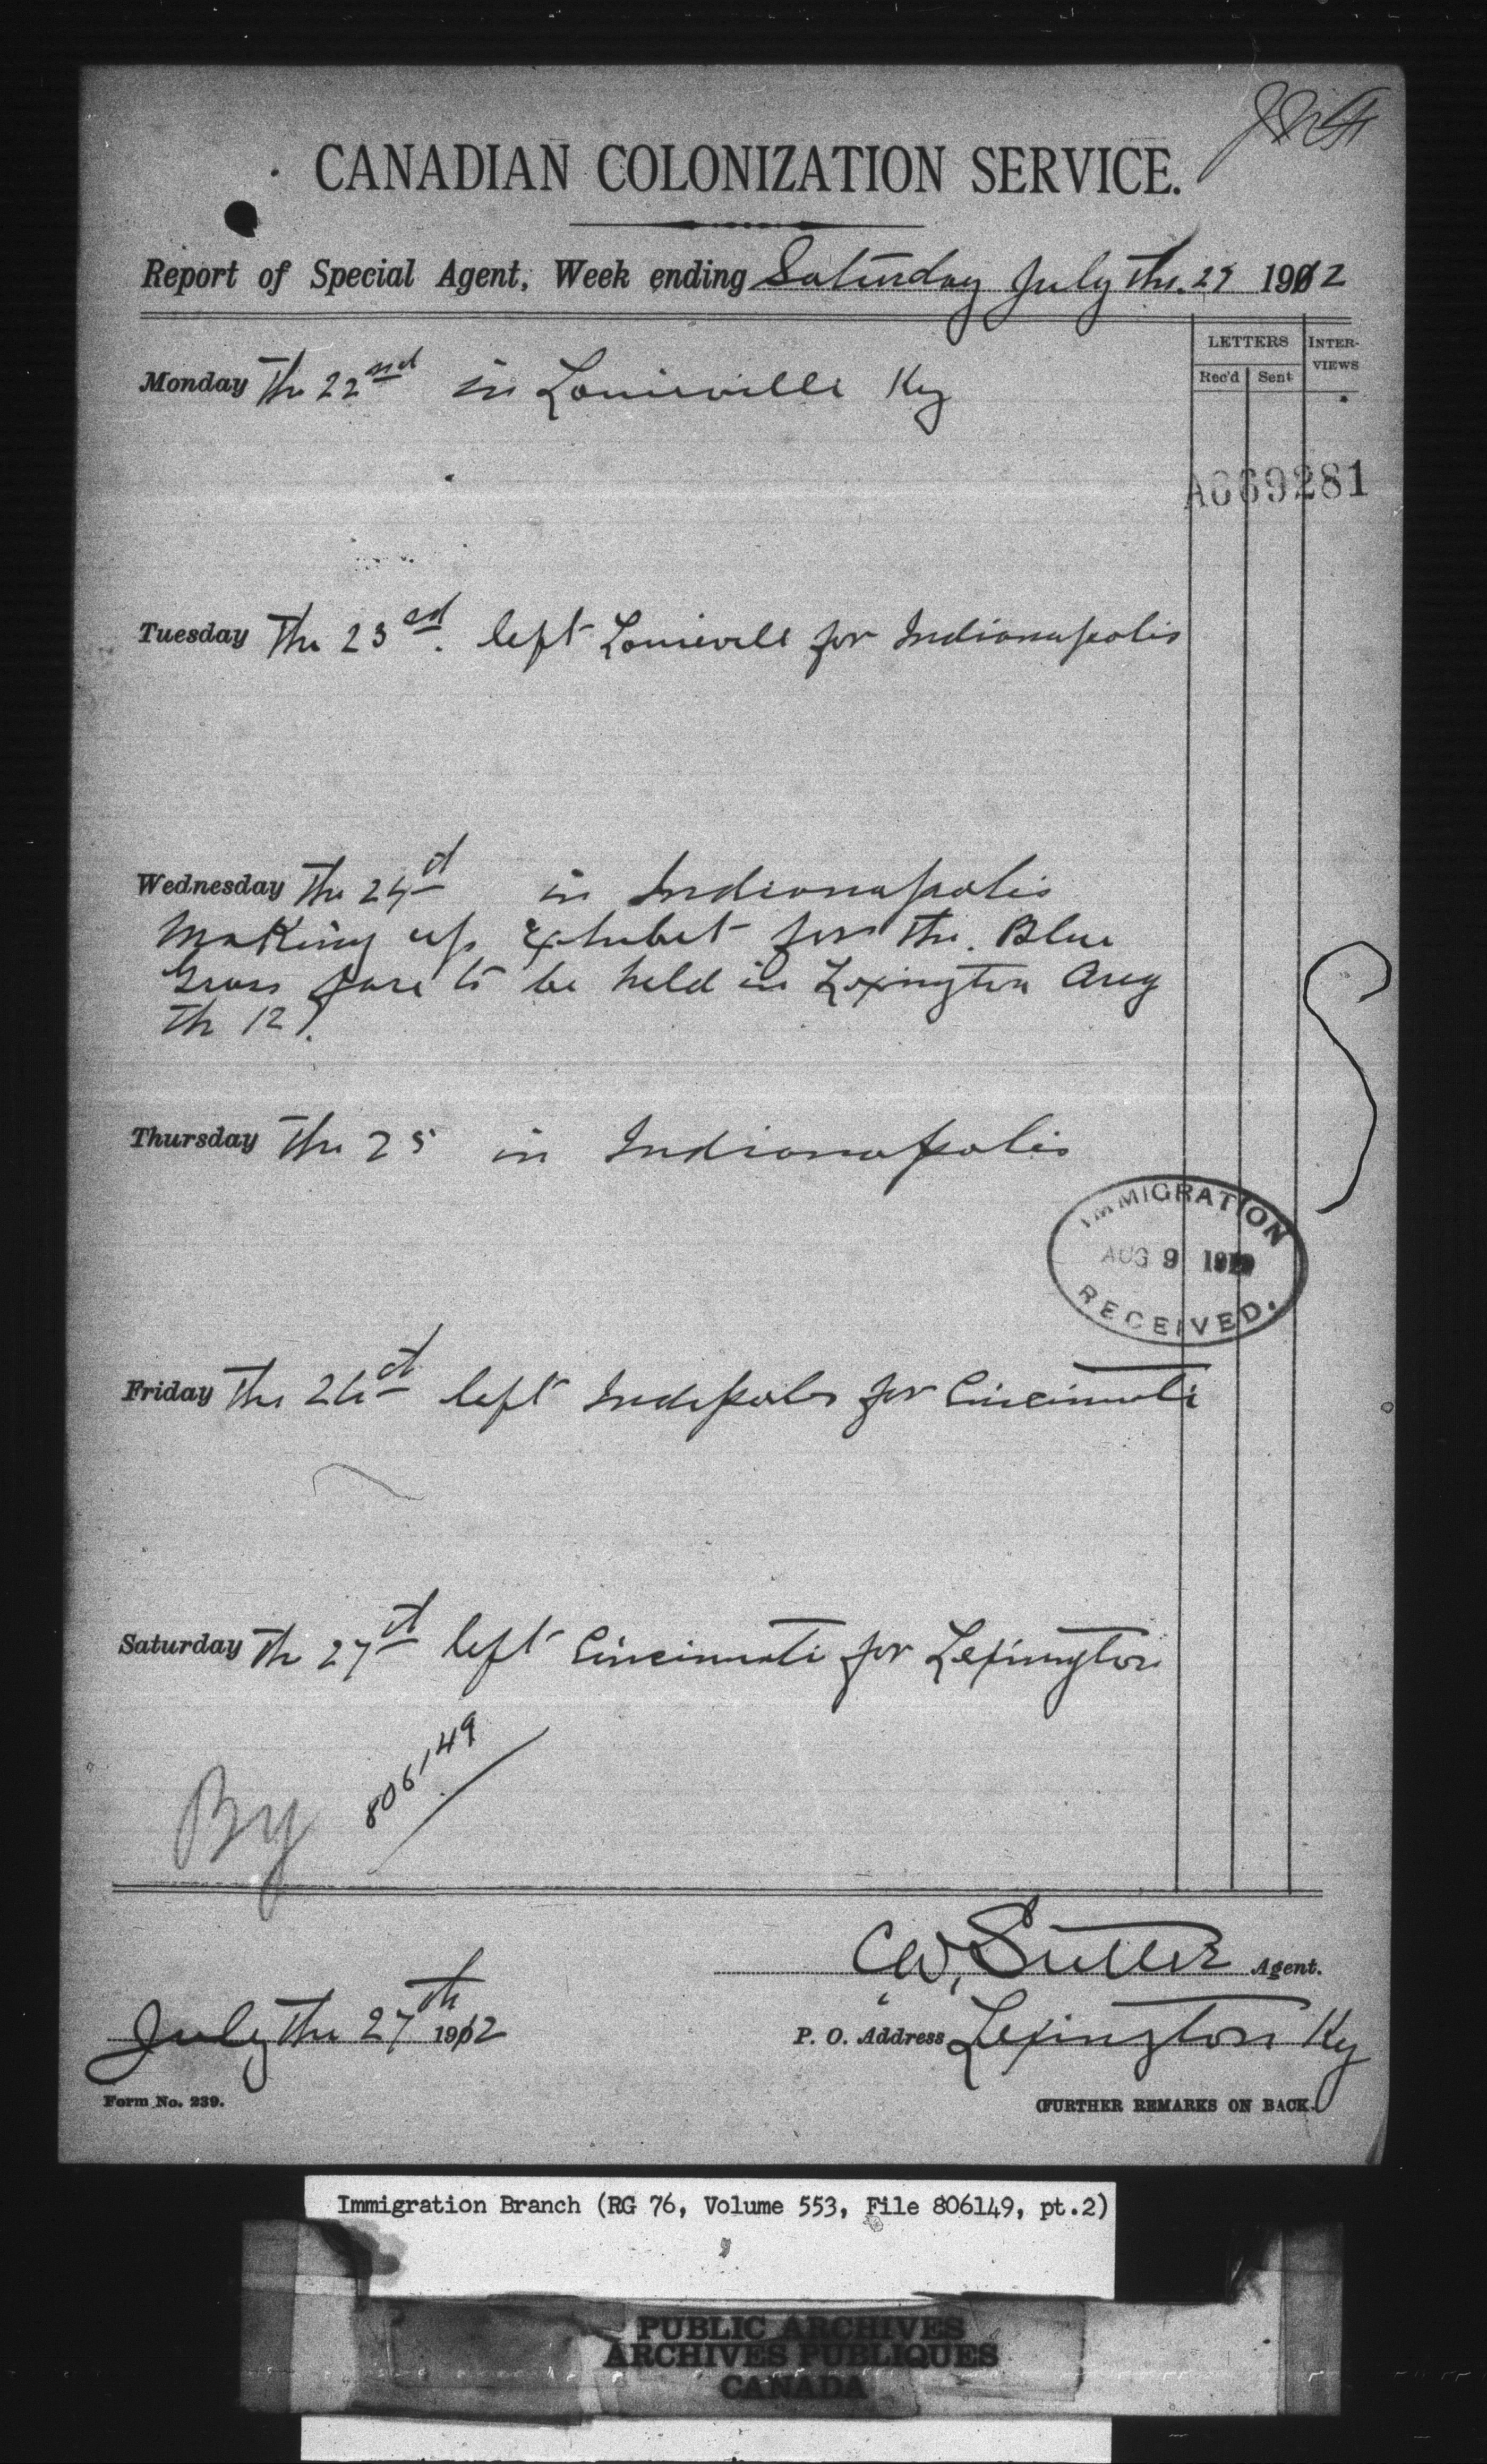 CANADIAN COLONIZATION SERVICE.
Report of Special Agent, Week ending Saturday July The. 27 1912
LETTERS INTER-VIEWS
Rec'd Sent
Monday The 22nd in Louisville Ky
A669281
Tuesday The 23ed. left Louisvill for Indianapolis
Wednesday The 24d in Indianapolis
Making up Exhubet for The. Blue
Grass fare to be held in Lexington Aug
Th 12.
Thursday The 25 in Indianapolis
IMMIGRATION
AUG 9 1912
RECEIVED.
Friday The 26d left for Cincinnati
Saturday Th 27d left Cincinnati for Lexington
806149
By
C W. Sutter Agent.
July The 27th 1912
P. O. Address Lexington Ky
Form No. 239.
(FURTHER REMARKS ON BACK.)
Immigration Branch (RG 76, Volume 553, File 806149, pt.2)
PUBLIC ARCHIVES
ARCHIVES PUBLIQUES
CANADA